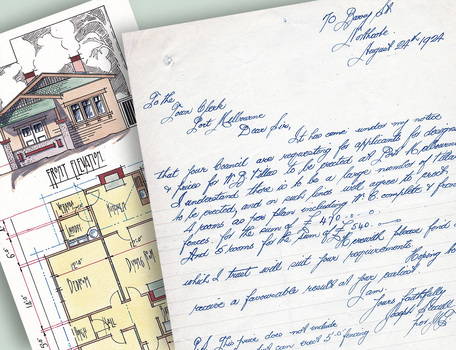 70 Barry St
Northcote
August 24th 1924
To the
Town Clerk
Port Melbourne
Dear Sir,
It has come under my notice
that your Council are requesting for applicants for designs
& prices for W.B Villas to be erected at Port Melbourne
I understand there is to be a large number of Villas
to be erected, and on such lines will agree to erect
4 rooms as per plans including W.C complete & front
fences for the sum of £490
And 5 rooms for the sum of £540
Herewith please find
which I trust will suit your requirements. Hoping to
receive a favourable result
I am
Yours faithfully
Joseph
P.S. This price does not include
but can erect 5'.0" fencing
FRONT ELEVATION
HALL